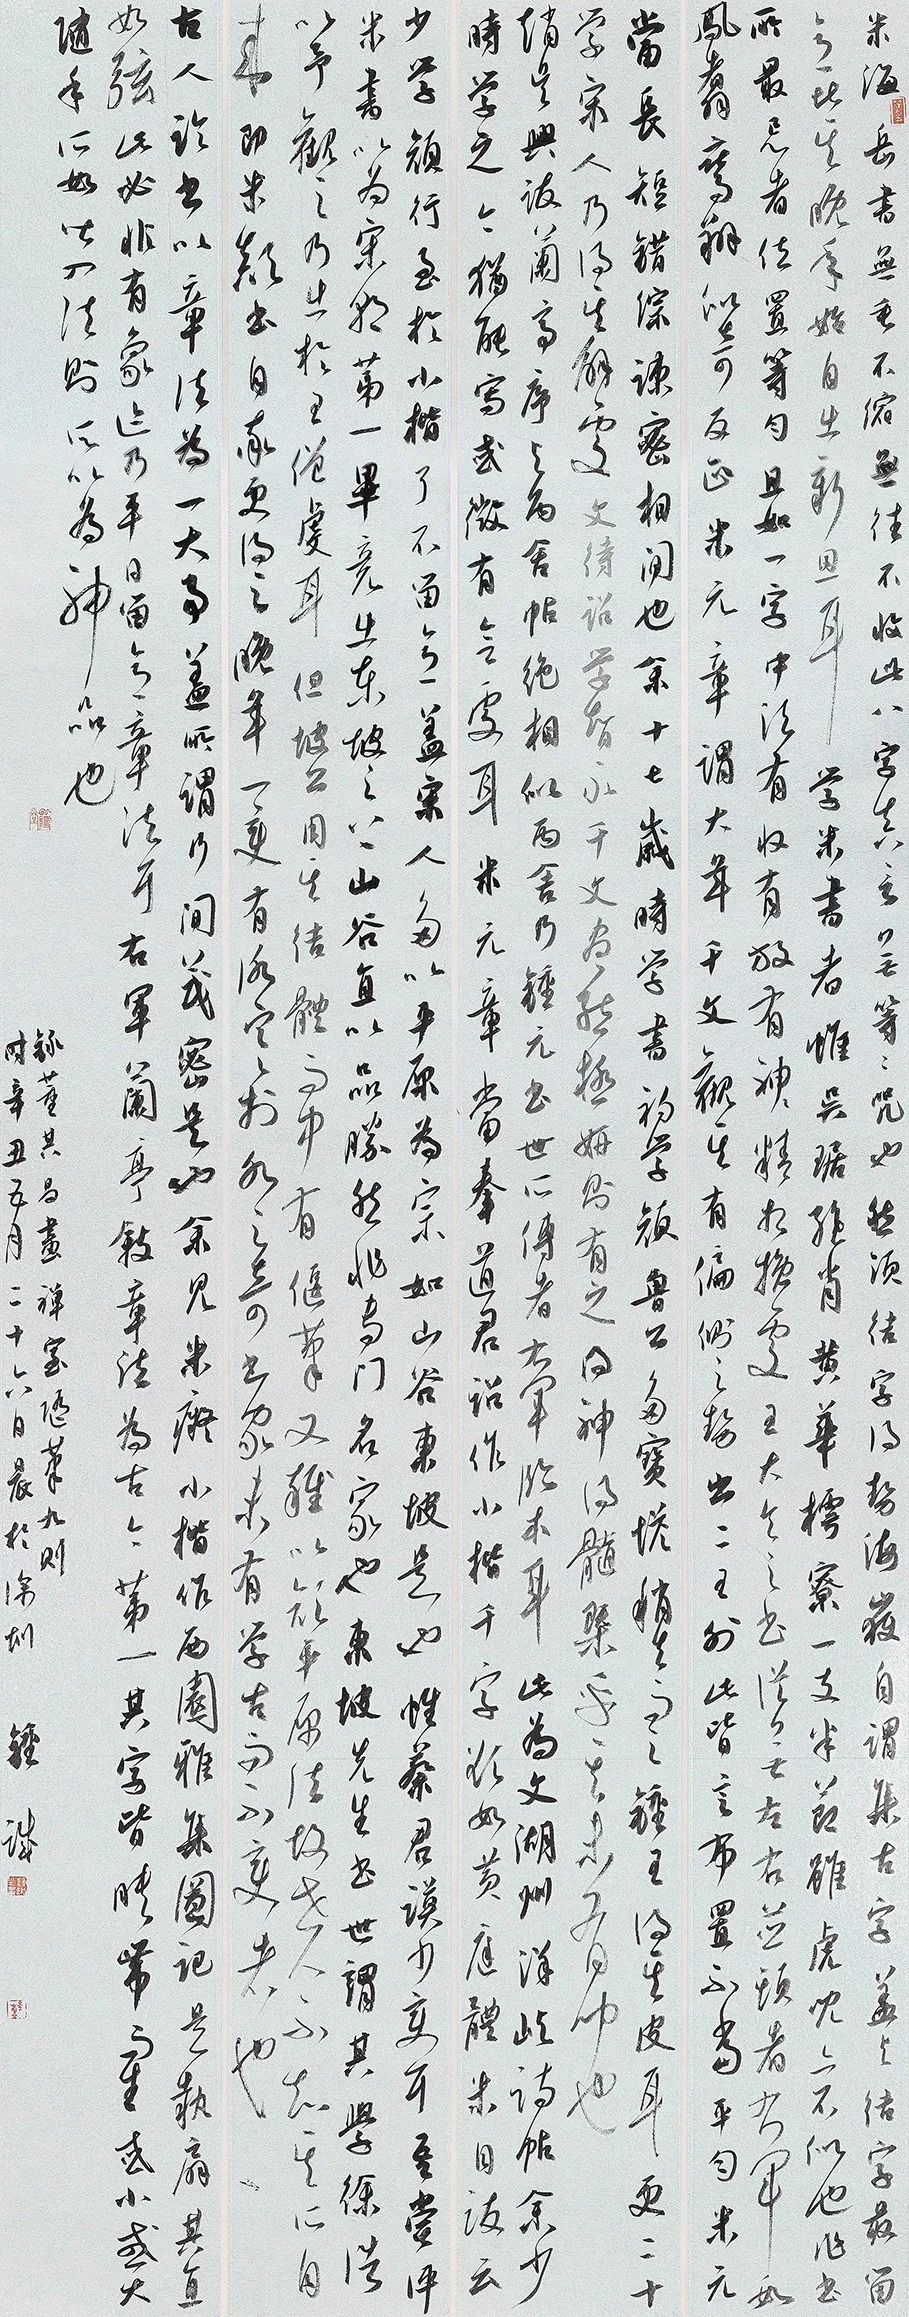 米海岳書無垂不縮無往不收此八字真言無等等咒也然須結字得勢海嶽自謂集古字蓋於結字最留
意比其晚年始自出新思耳 學米書者惟吳琚絕肖黃華樗寮一支半節雖虎兒亦不似也作書
所最忌者位置等勻且如一字中須有收有放有精神相挽處王大令之書從無左右並頭者右軍如
鳳翥鸞翔似奇反正米元章謂大年千文觀其有偏側之勢出二王外此皆言布置不當平勻
當長短錯綜疎密相間也余十七歲時學書初學顏魯公多寶塔稍去而之鍾王得其皮耳更二十
學宋人乃得其解處 文待詔學智永千文盡態極妍則有之得神得髓槩乎其未有聞也
趙吳興跋蘭亭序與丙舍帖絕相似丙舍乃鍾元常書世所傳者右軍臨本耳 此為文湖州洋嶼詩帖余少
時學之今猶能寫或微有合處耳 米元章嘗奉道君詔作小楷千字欲如黃庭體米自跋云
少學顏行至於小楷了不留意蓋宋人多以平原為宗如山谷東坡是也惟蔡君謨少變耳吾嘗評
米書以為宋朝第一畢竟出東坡之上山谷直以品勝然非專門名家也東坡先生書世謂其學徐浩
以予觀之乃出於王僧虔耳 但坡公用其結體而中有偃筆又雜以顏平原法故世人不知其所自
來即米顛書自率更得之晚年一變有冰寒於水之奇書家未有學古而不變者也
古人論書以章法為一大事蓋所謂行間茂密是也余見米癡小楷作西園雅集圖記是紈扇其直
如弦此必非有象迹乃平日留意章法耳右軍蘭亭敘章法為古今第一其字皆映帶而生或小或大
隨手所如皆入法則所以為神品也
錄董其昌畫禪室隨筆九則
時辛丑五月二十六日晨於深圳 鍾誠